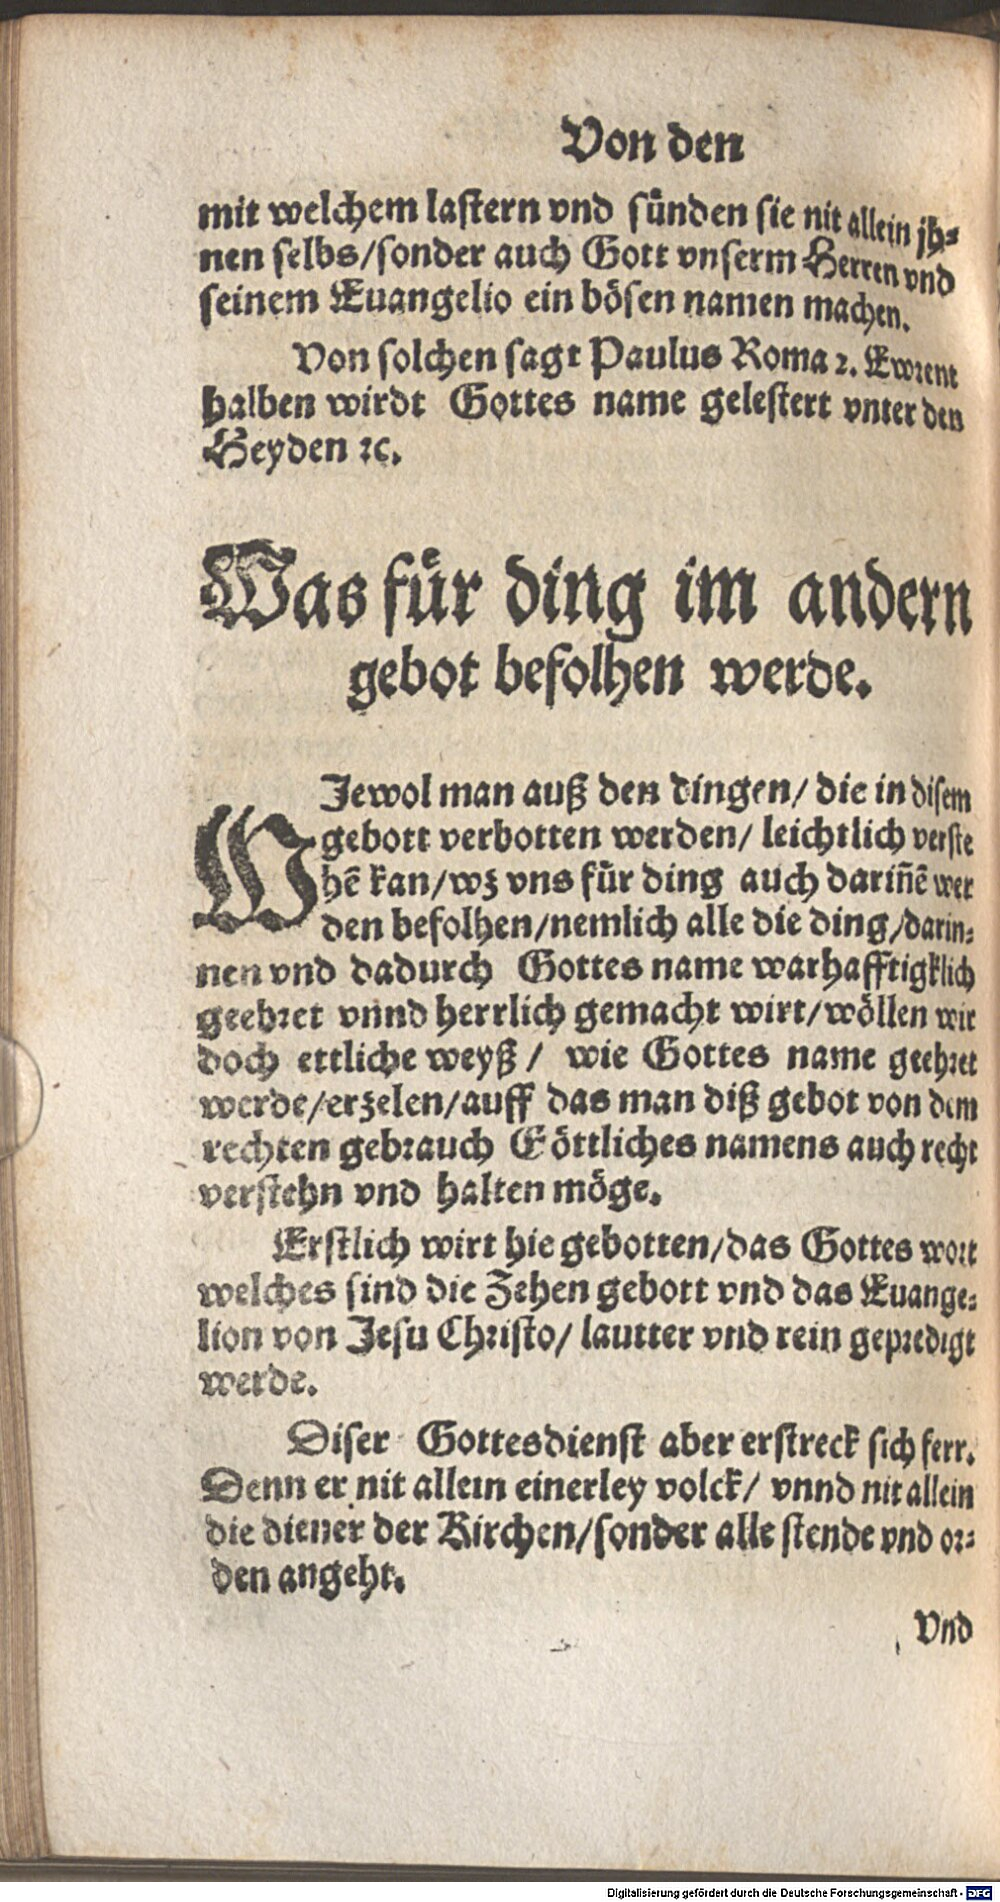 Von den
mit welchem lastern vnd sünden sie nit allein jh⸗
nen selbs/sonder auch Gott vnserm Herren vnd
seinem Euangelio ein bösen namen machen.
Von solchen sagt Paulus Roma 2. Ewrent
halben wirdt Gottes name gelestert vnter den
Heyden ꝛc.
Was für ding im andern
gebot befolhen werde.
WJewol man auß den dingen/ die in disem
gebott verbotten werden/ leichtlich verste
hē kan/wz vns für ding auch dariñē wer
den befolhen/nemlich alle die ding/darin⸗
nen vnd dadurch Gottes name warhafftigklich
geehret vnnd herrlich gemacht wirt/wöllen wir
doch ettliche weyß/ wie Gottes name geehret
werde/erzelen/auff das man diß gebot von dem
rechten gebrauch Göttliches namens auch recht
verstehn vnd halten möge.
Erstlich wirt hie gebotten/das Gottes wort
welches sind die Zehen gebott vnd das Euange⸗
lion von Jesu Christo/ lautter vnd rein gepredigt
werde.
Diser Gottesdienst aber erstreck sich ferr.
Denn er nit allein einerley volck/ vnnd nit allein
die diener der Kirchen/sonder alle stende vnd or⸗
den angeht.
Vnd
Digitalisierung gefördert durch die Deutsche Forschungsgemeinschaft - DFG